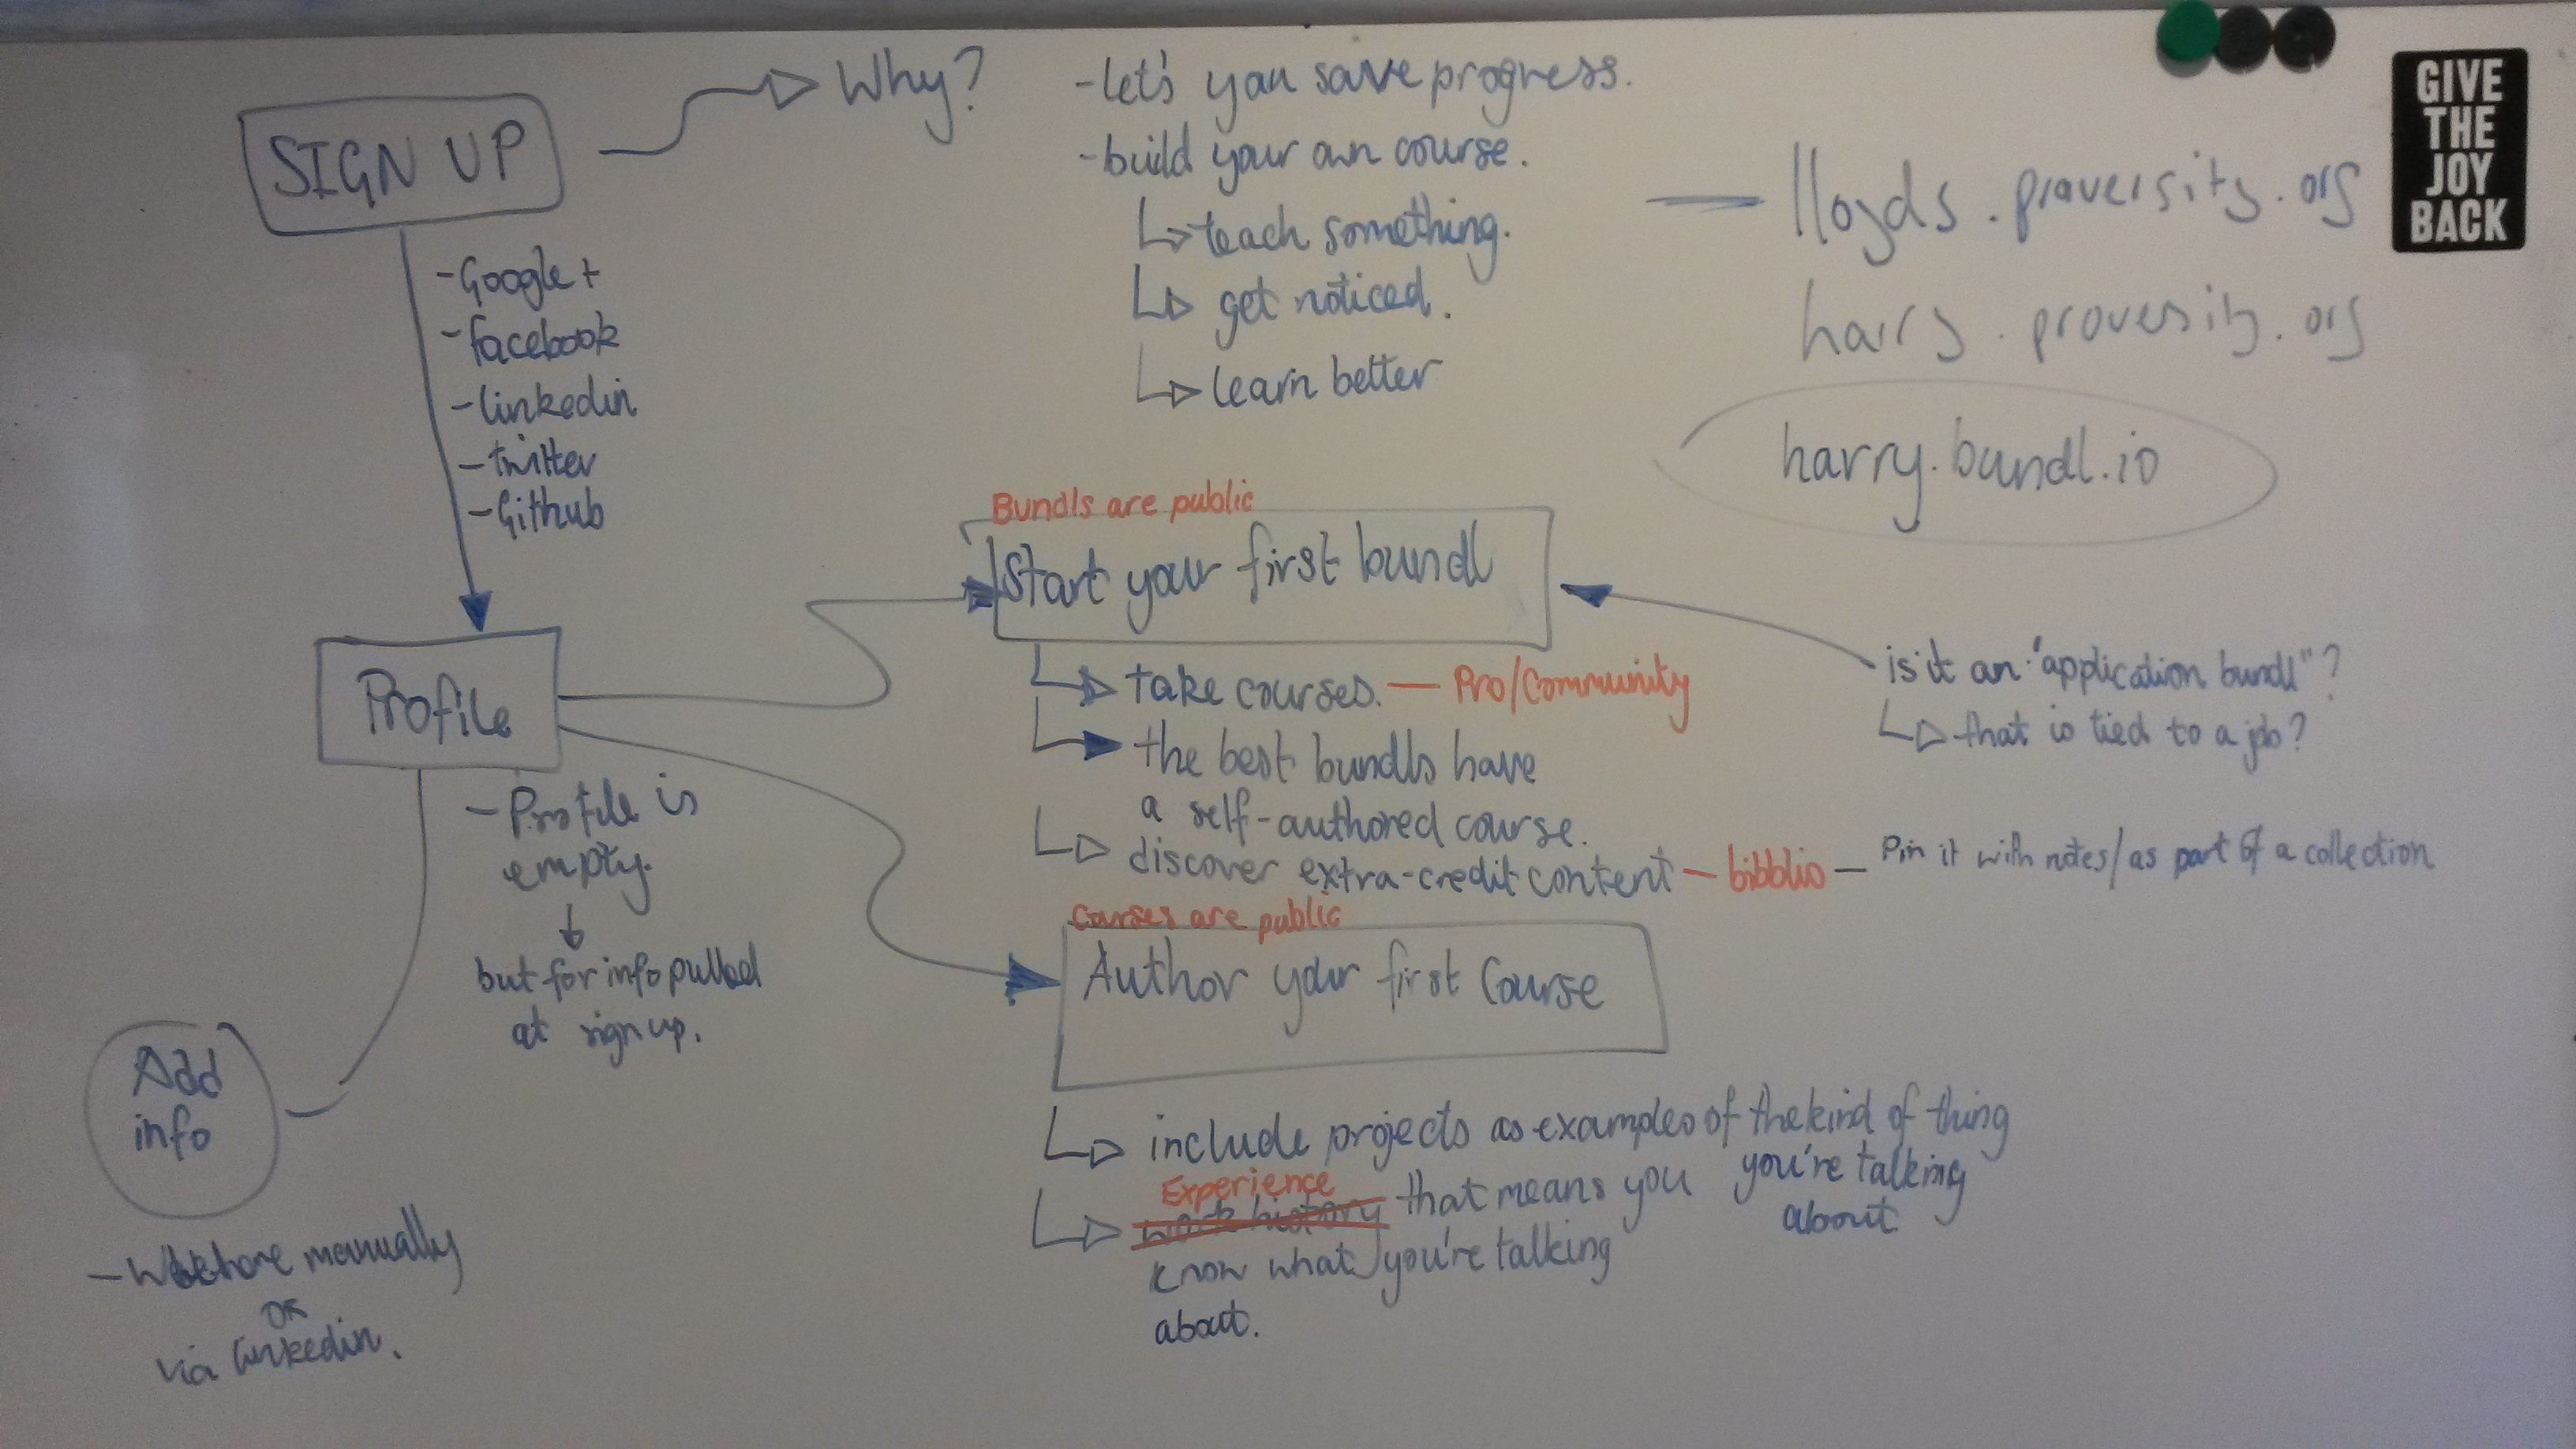 SIGN UP
Why?
-let's you save progress.
-build your own course.
teach something.
get noticed.
learn better
lloyds.proversity.org
harry.proversity.org
harry.bundl.io
GIVE
THE
JOY
BACK
-Google+
-facebook
-linkedin
-twitter
-Github
Profile
-Profile is
empty.
but for info pulled
at sign up.
Add
info
manually
OR
via linkedin.
Bundls are public
Start your first bundl
take courses. — Pro/Community
the best bundls have
a self-authored course.
discover extra-credit content — bibblio — Pin it with notes/as part of a collection
is it an "application bundl"?
that is tied to a job?
Courses are public
Author your first Course
include projects as examples of the kind of thing
you're talking
about
Experience
work history that means you
know what you're talking
about.